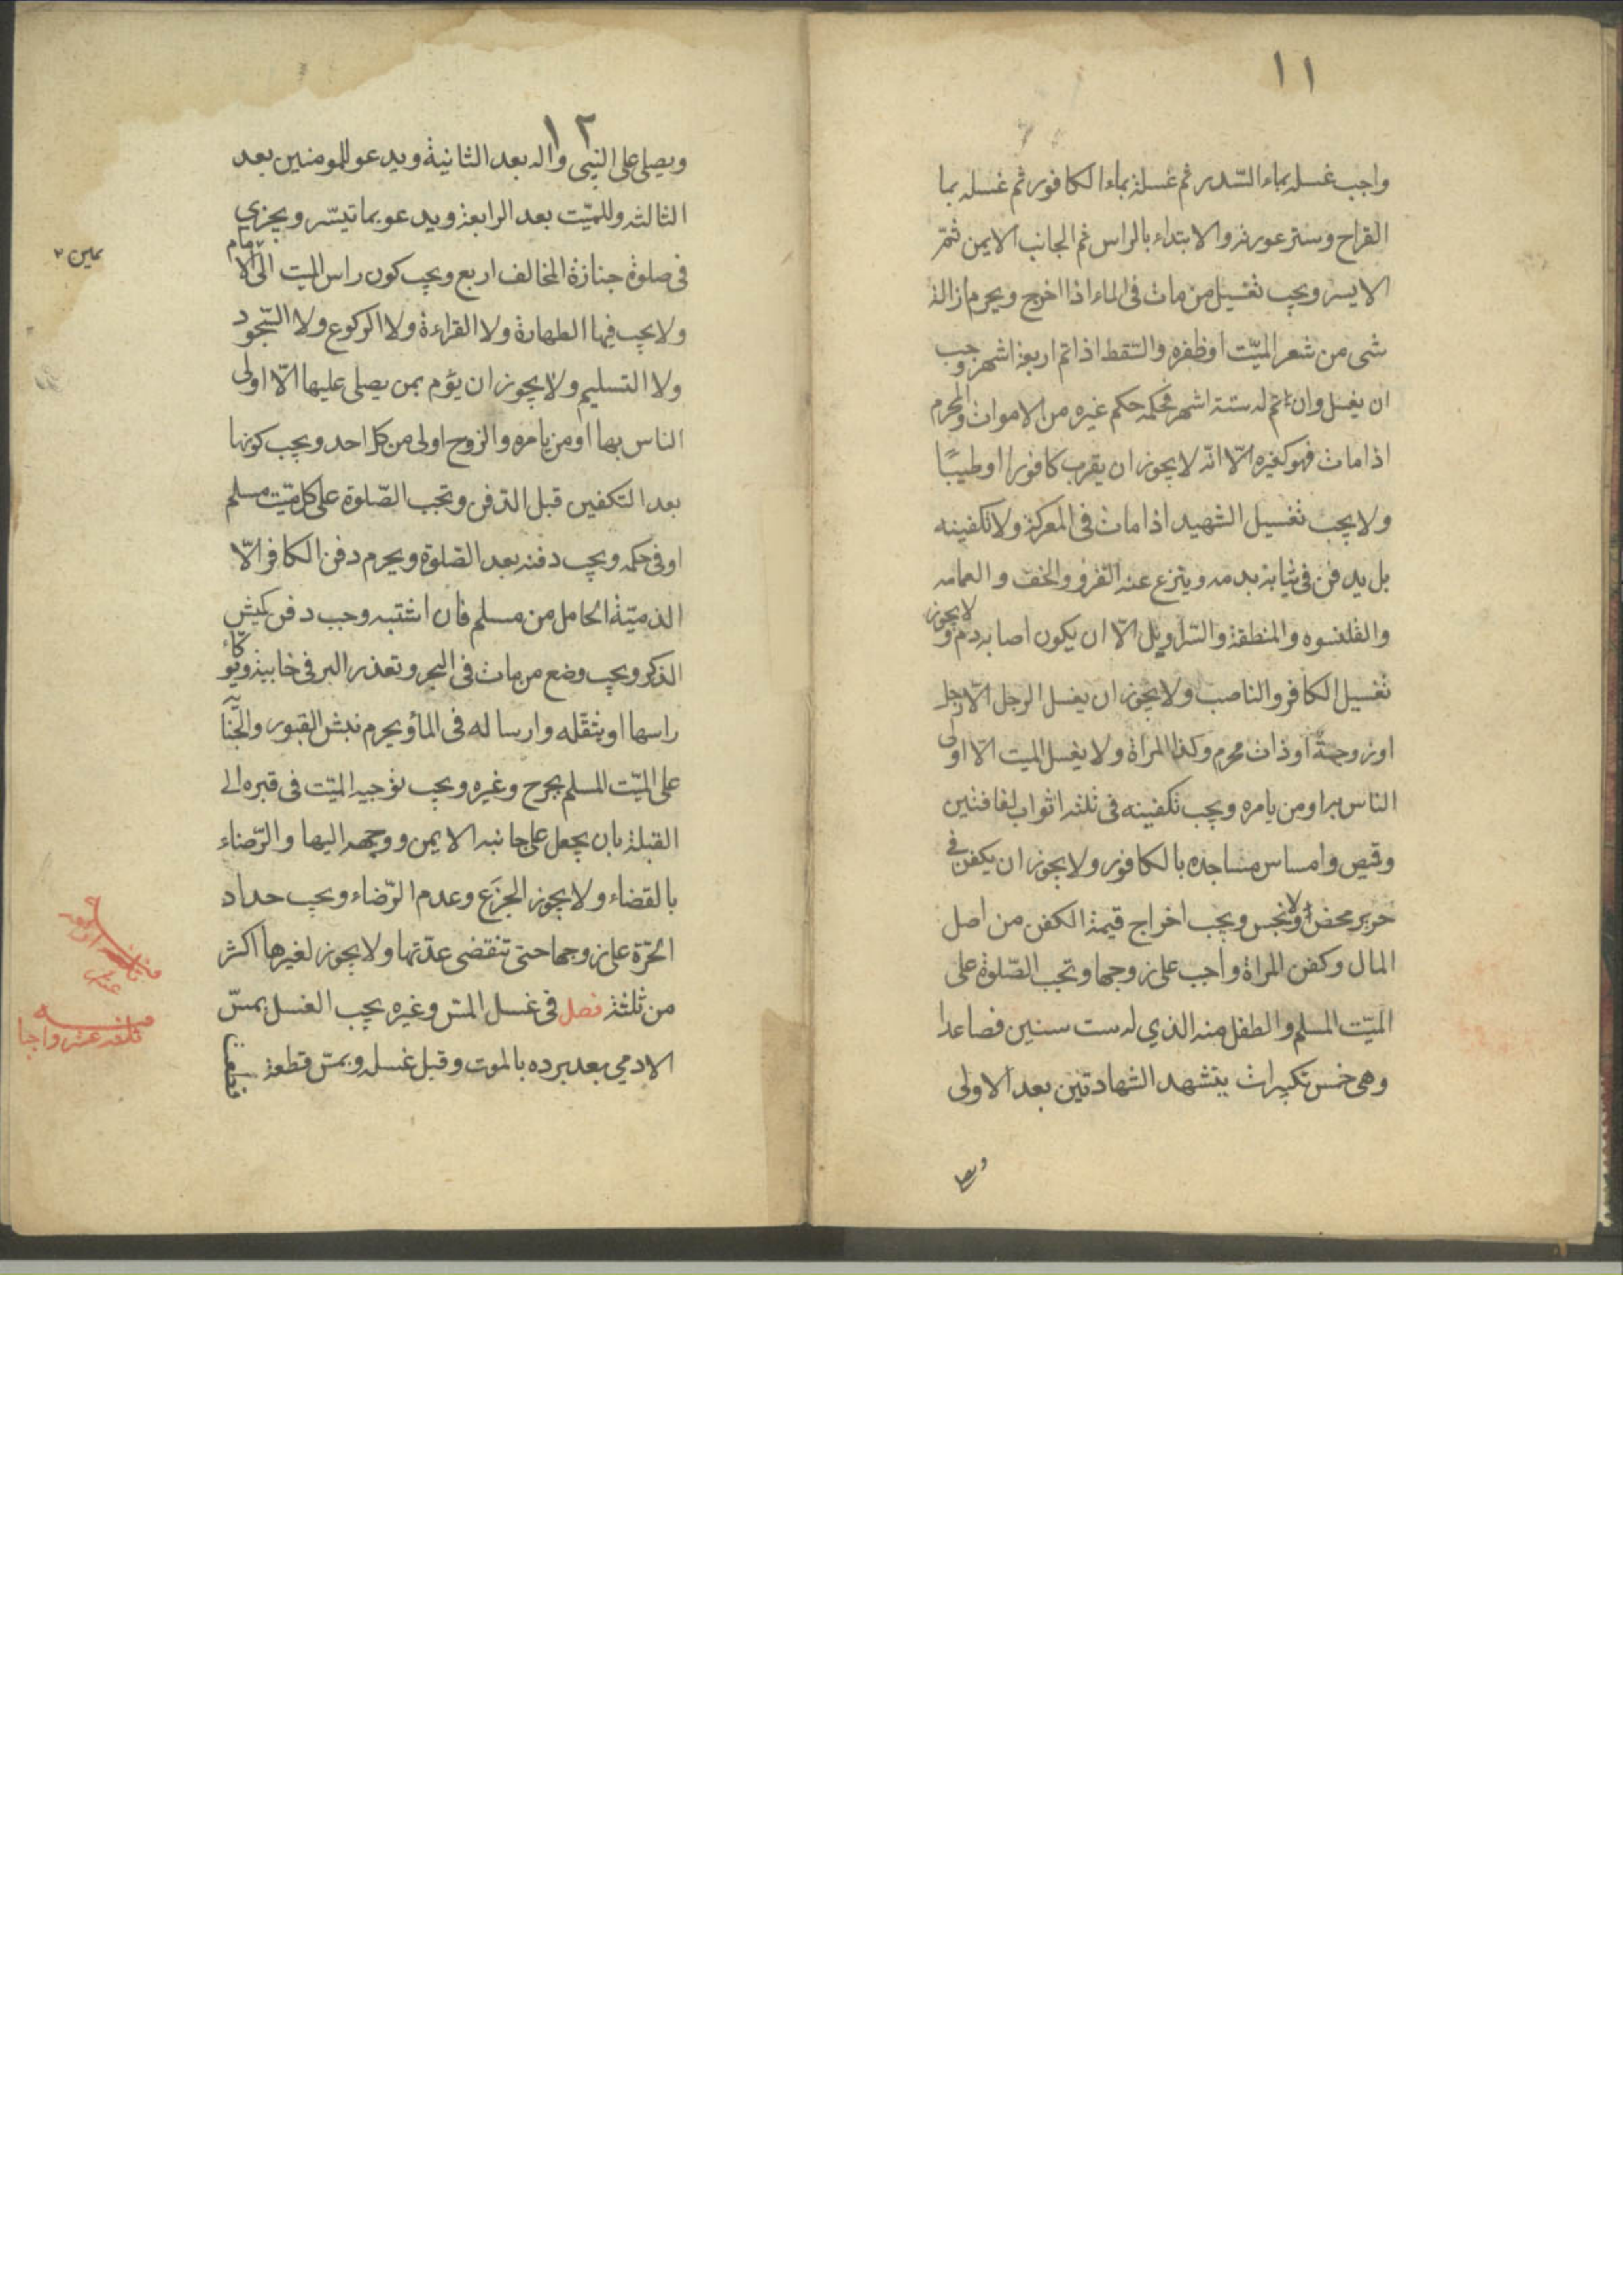 ١١
واجب غسله بماء السّدر ثم غسلة بماء الكافور ثم غسله بما
القراح وستر عورته والابتداء بالراس ثم الجانب الايمن ثمّ
الايسر ويجب تغسيل من مات فى الماء اذا اخرج ويحرم ازالة
شى من شعر الميّت او ظفره والسّقط اذا تم اربعة اشهر وجب
ان يغسل وان تم له ستة اشهر فحكمه حكم غيره من الاموات والمحرم
اذا مات فهو كغيره الّا انّه لا يجوز ان يقرب كافورا او طيبًا
ولا يجب تغسيل الشهيد اذا مات فى المعركة ولا تكفينه
بل يدفن فى ثيابة بدمه وينزع عنه الفرو والخف والعمامه
والقلنسوه والمنطقة والسّراويل الّا ان يكون اصابه دم ولا يجوز
تغسيل الكافر والناصب ولا يجوز ان يغسل الرجل الّا رجل
او زوجة او ذات محرم وكذا المراة ولا يغسل الميت الّا اولى
الناس به او من يامره ويجب تكفينه فى ثلثه اثواب لفافتين
وقميص وامساس مساجده بالكافور ولا يجوز ان يكفن فى
حرير محض ولا نجس ويجب اخراج قيمة الكفن من اصل
المال وكفن المراة واجب على زوجها وتجب الصّلوة على
الميّت المسلم والطفل منه الذي له ست سنين فصاعدا
وهى خمس تكبيرات يتشهد الشهادتين بعد الاولى
ويصلى
١٢
ويصلى على النبى واله بعد الثانية ويدعو للمومنين بعد
الثالثه وللميّت بعد الرابعة ويدعو بما تيسّر ويجزي
فى صلوة جنازة المخالف اربع ويجب كون راس الميت الى الامام
ولا يجب فيها الطهارة ولا القراءة ولا الركوع ولا السّجود
ولا التسليم ولا يجوز ان يؤم بمن يصلى عليها الّا اولى
الناس بها او من يامره والزوج اولى من كل احد ويجب كونها
بعد التكفين قبل الدّفن وتجب الصّلوة على كل ميّت مسلم
او فى حكمه ويجب دفنه بعد الصّلوة ويحرم دفن الكافر الّا
الذميّة الحامل من مسلم فان اشتبه وجب دفن كميش
الذكر ويجب وضع من مات فى البحر وتعذر البر فى خابية ويوكاء
راسها او يثقّله وارساله فى الماء ويحرم نبش القبور والجناية
على الميّت المسلم بجرح وغيره ويجب توجيه الميّت فى قبره الى
القبلة بان يجعل على جانبه الايمن ووجهه اليها والرّضاء
بالقضاء ولا يجوز الجزع وعدم الرّضاء ويجب حداد
الحرّة على زوجها حتى تنقضى عدّتها ولا يجوز لغيرها اكثر
من ثلثة فصل فى غسل المسّ وغيره يجب الغسل بمسّ
الادمي بعد برده بالموت وقبل غسله وبمسّ قطعة
يمين ٢
فيه
ثلثه عشر واجبا